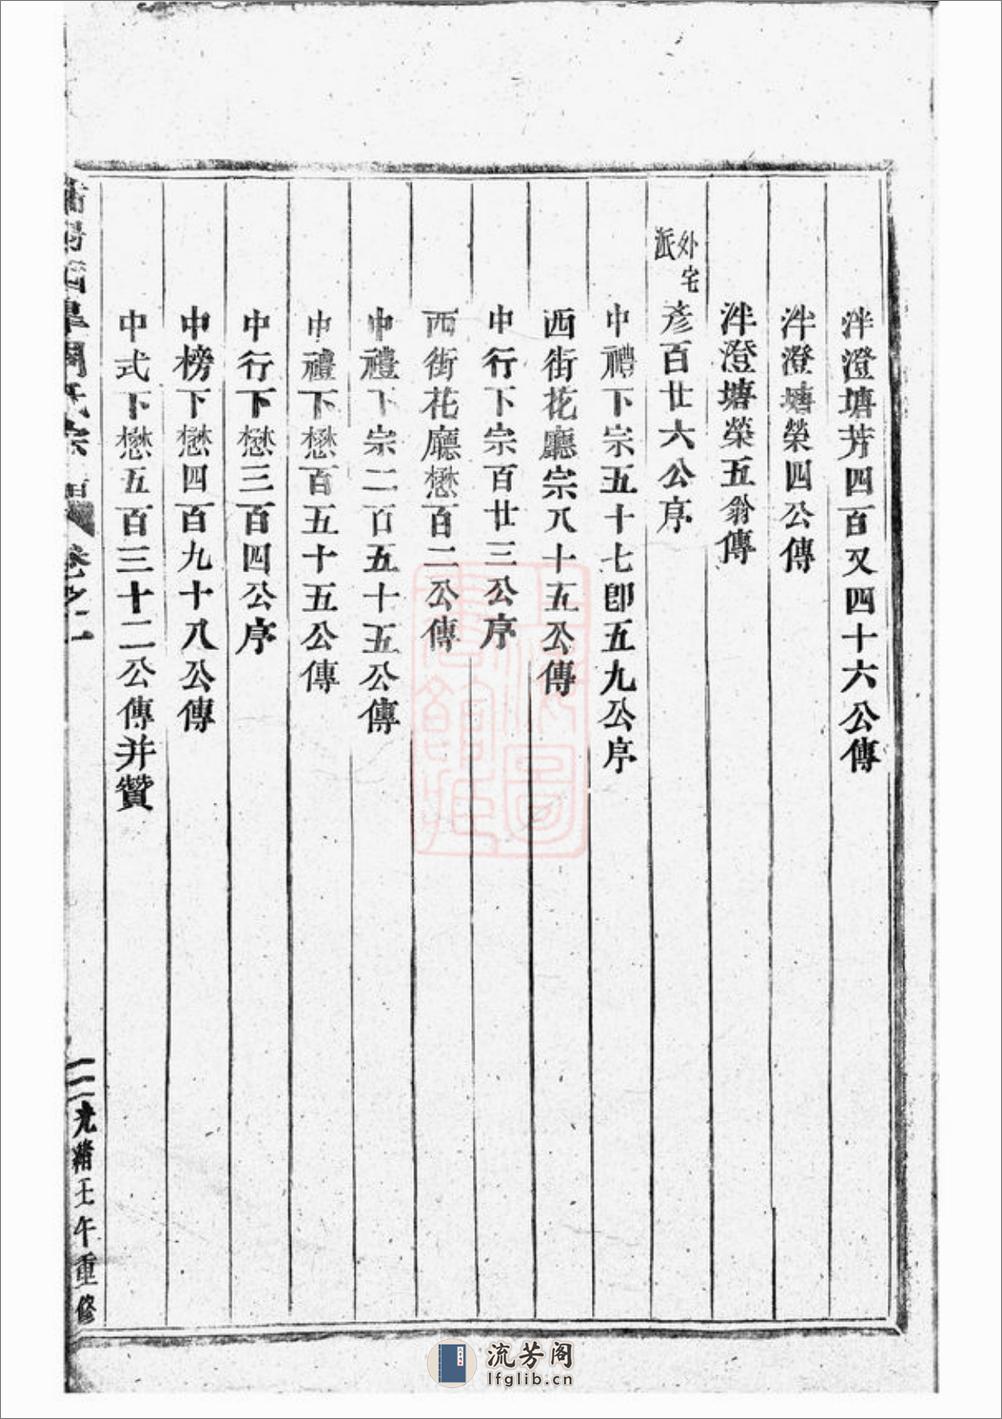 泮澄塘芳四百又四十六公傳
泮澄塘榮四公傳
泮澄塘榮五翁傳
外宅派
彥百廿六公序
中禮下宗五十七卽五九公序
西街花廳宗八十五公傳
中行下宗百廿三公序
西街花廳懋百二公傳
中禮下宗二百五十五公傳
中禮下懋百五十五公傳
中行下懋三百四公序
中榜下懋四百九十八公傳
中式下懋五百三十二公傳并贊
宗 卷之一
二 光緒壬午重修
上海圖書館藏
流芳阁
lfglib.cn